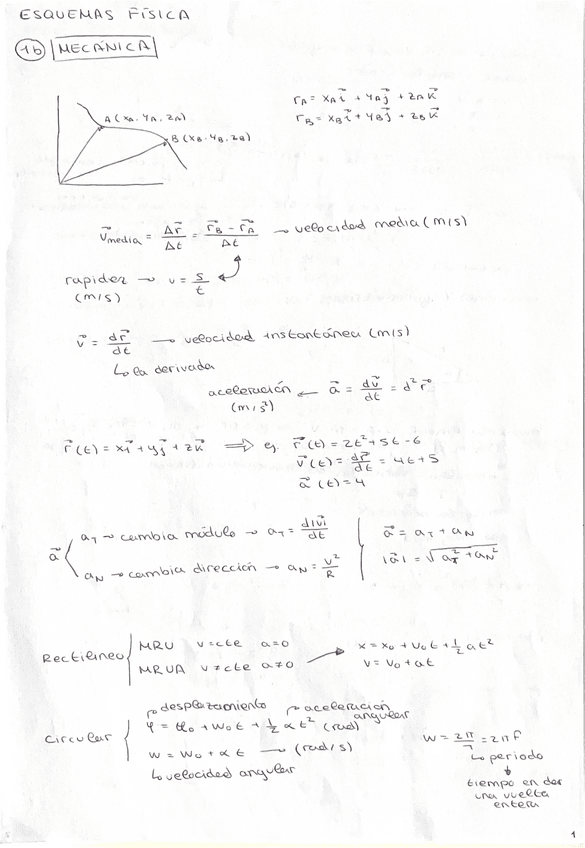 ESQUEMAS FÍSICA
1b MECÁNICA
A (xA, yA, zA)
B (xB, yB, zB)
rA = xA i⃗ + yA j⃗ + zA k⃗
rB = xB i⃗ + yB j⃗ + zB k⃗
v⃗media = Δr⃗/Δt = (r⃗B - r⃗A)/Δt → velocidad media (m/s)
rapidez → v = s/t
(m/s)
v⃗ = dr⃗/dt → velocidad instantánea (m/s)
↳ la derivada
aceleración ← a⃗ = dv⃗/dt = d² r⃗
(m/s²)
r⃗(t) = xi⃗ + yj⃗ + zk⃗ ⇒ ej. r⃗(t) = 2t² + 5t - 6
v⃗(t) = dr⃗/dt = 4t + 5
a⃗(t) = 4
a⃗
aT → cambia módulo → aT = d|v⃗|/dt
aN → cambia dirección → aN = v²/R
a⃗ = aT + aN
|a⃗| = √(aT² + aN²)
Rectilíneo
MRU v=cte a=0
MRUA v≠cte a≠0
x = x0 + v0t + ½ at²
v = v0 + at
Circular
desplazamiento
aceleración angular
φ = φ0 + ω0 t + ½ α t² (rad)
ω = ω0 + α t → (rad/s)
↳ velocidad angular
ω = 2π/T = 2πf
↳ periodo
↓
tiempo en dar
una vuelta
entera
1